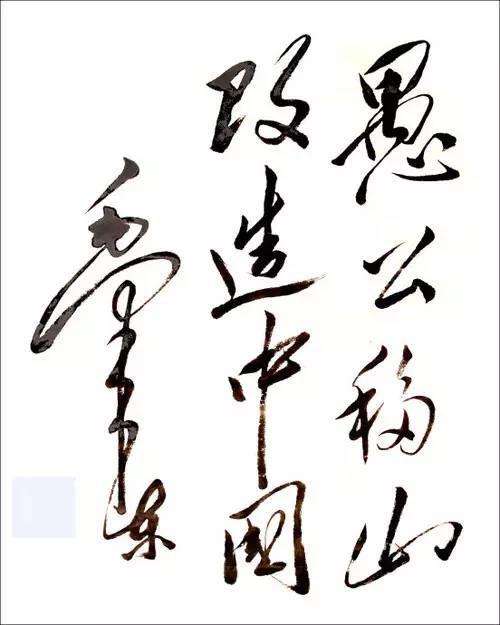 愚公移山
改造中国
毛泽东